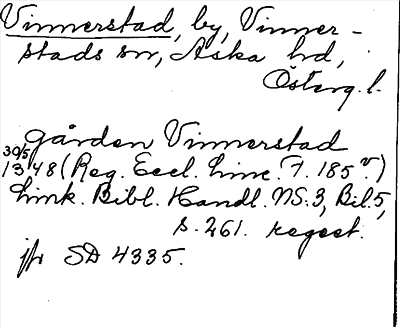 Vinnerstad, by, Vinner-
stads sn, Aska hd,
Österg. l.
gården Vinnerstad
30/5 1348 (Reg. Eccl. Linc. F. 185 v.)
Link. Bibl. Handl. NS. 3, Bil. 5,
s. 261. regest.
jfr SD 4335.